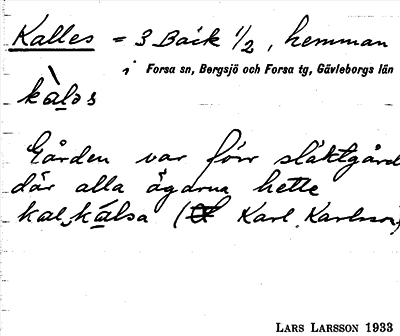 Kalles = 3 Back 1/2, hemman
i Forsa sn, Bergsjö och Forsa tg, Gävleborgs län
kàlɔs
Gården var förr släktgård
där alla ägarna hette
kal,kálsa ( Karl Karlsson)
LARS LARSSON 1933